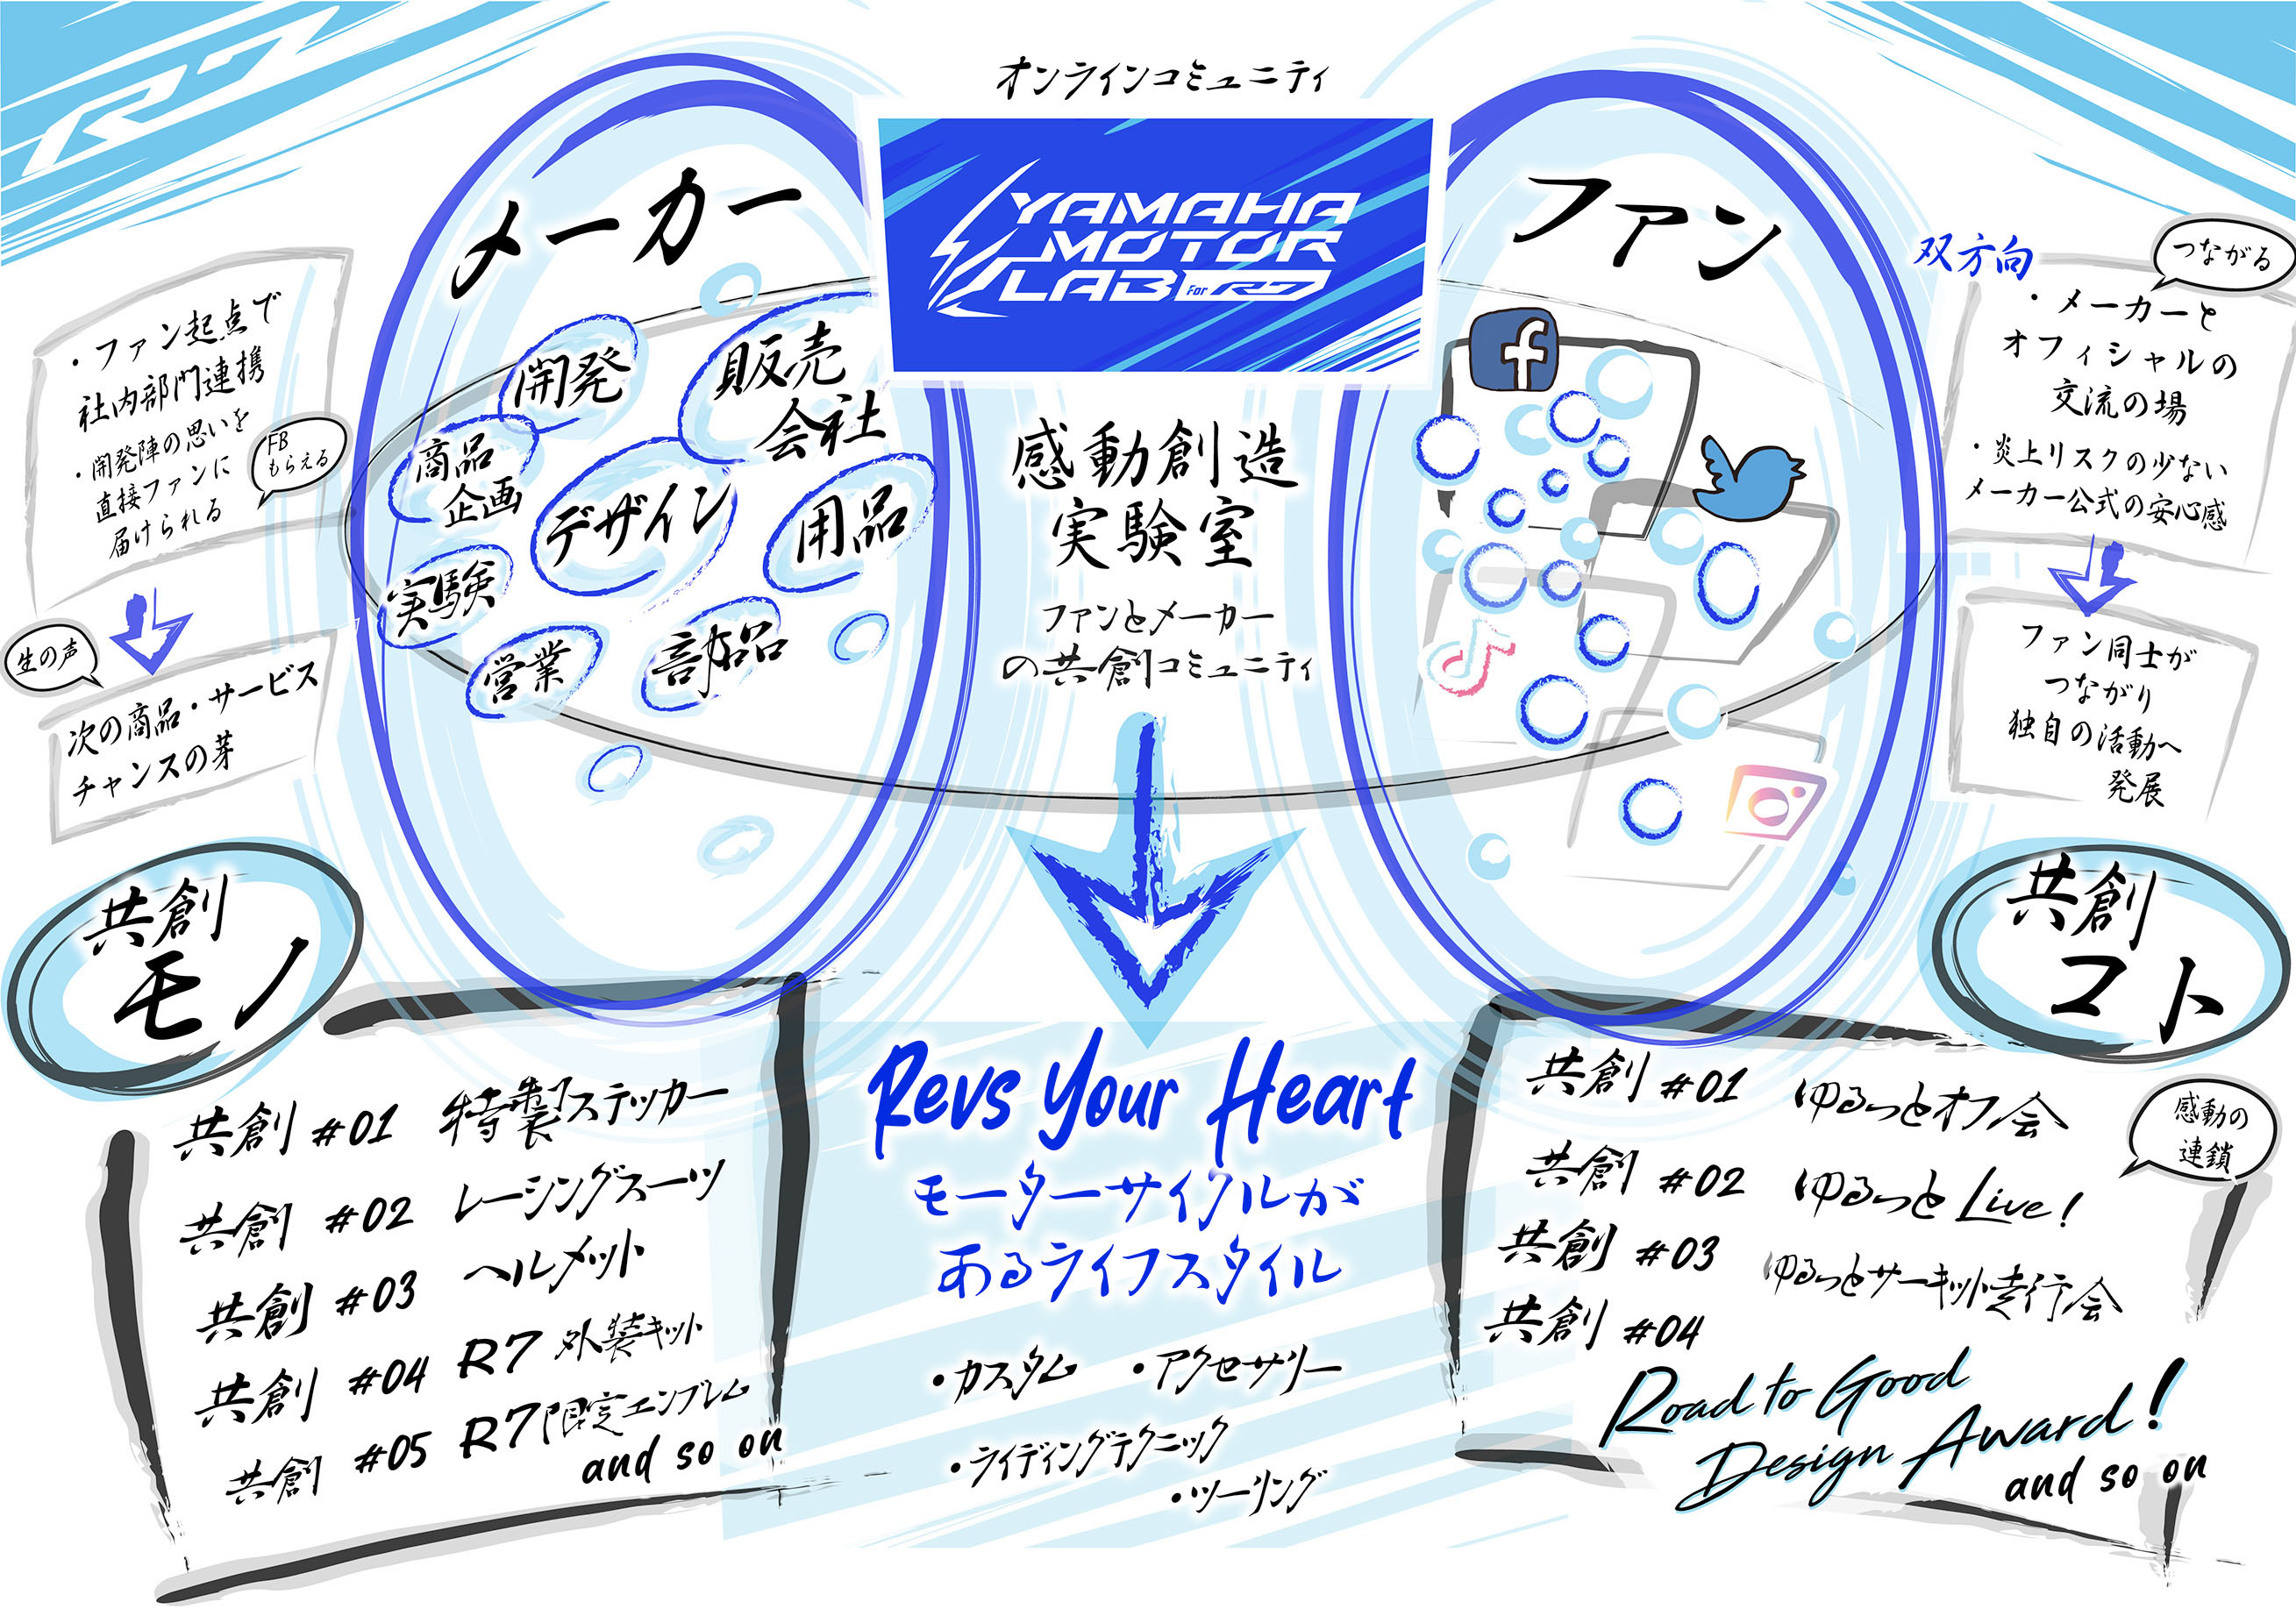 R7
オンラインコミュニティ
YAMAHA
MOTOR
LAB For R7
感動創造
実験室
ファンとメーカー
の共創コミュニティ
メーカー
開発
販売
会社
商品
企画
デザイン
用品
実験
営業
部品
・ファン起点で
社内部門連携
・開発陣の思いを
直接ファンに
届けられる
FB
もらえる
生の声
次の商品・サービス
チャンスの芽
ファン
双方向
つながる
・メーカーと
オフィシャルの
交流の場
・炎上リスクの少ない
メーカー公式の安心感
ファン同士が
つながり
独自の活動へ
発展
共創
モノ
共創 #01 特製ステッカー
共創 #02 レーシングスーツ
共創 #03 ヘルメット
共創 #04 R7 外装キット
共創 #05 R7限定エンブレム
and so on
Revs Your Heart
モーターサイクルが
あるライフスタイル
・カスタム ・アクセサリー
・ライディングテクニック
・ツーリング
共創
コト
共創 #01 ゆるっとオフ会
共創 #02 ゆるっとLive!
共創 #03 ゆるっとサーキット走行会
共創 #04
Road to Good
Design Award!
and so on
感動の
連鎖